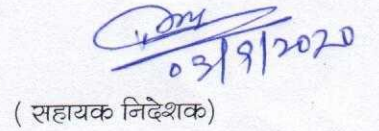 03/9/2020
( सहायक निदेशक)